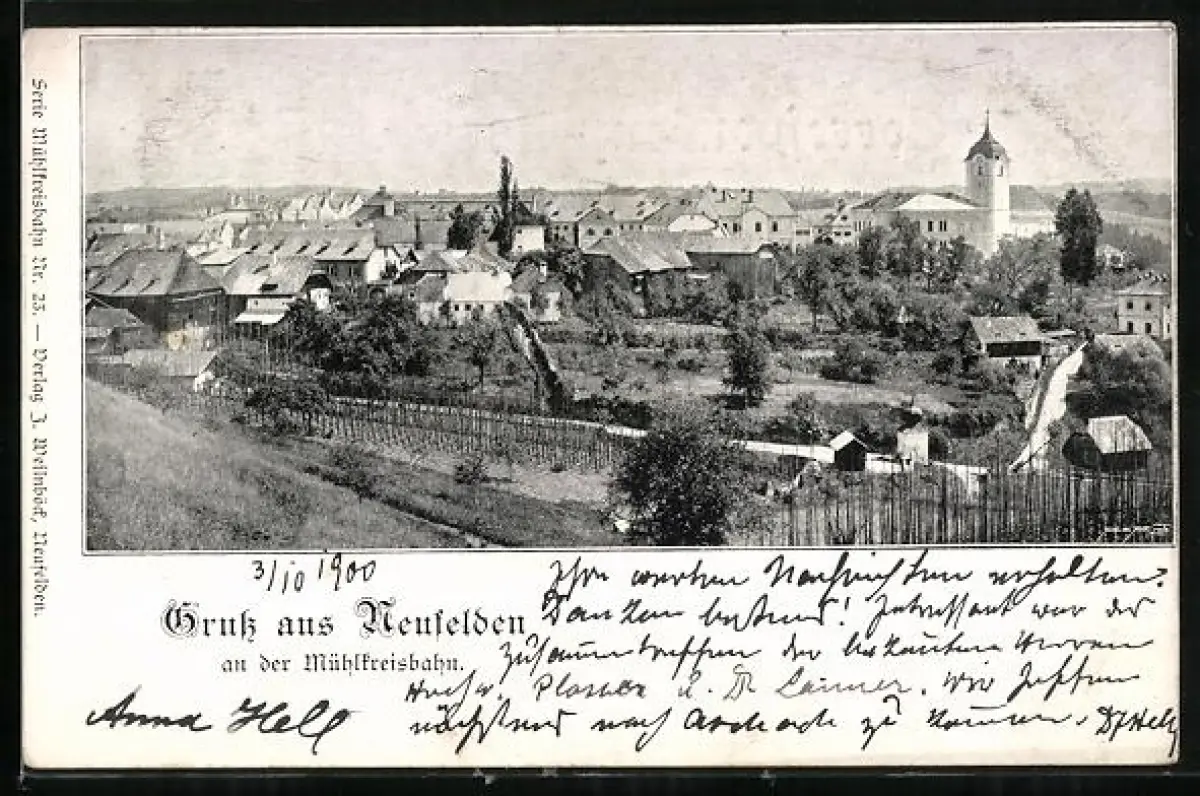 Serie Mühlkreisbahn Nr. 23. — Verlag J. Weilnböck, Neufelden.
3/10 1900
Gruß aus Neufelden
an der Mühlkreisbahn.
Ihre werten Nachrichten erhalten.
Danken bestens! Interessant war das
Zusammentreffen der bekannten Herren
u. Dr Lanner. Wir hoffen
nächstens nach zu kommen.
Anna Hell